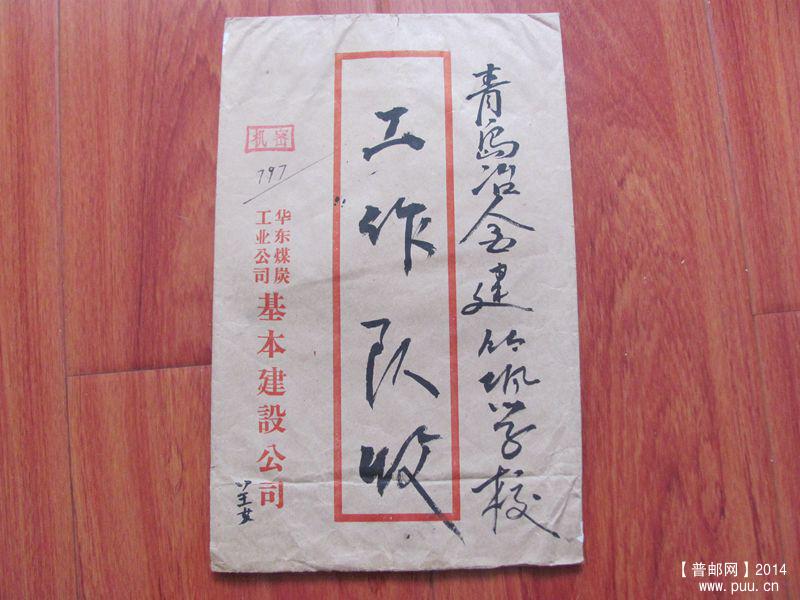 青岛冶金建筑学校
工作队收
机密
797
华东煤炭
工业公司
基本建设公司
【普邮网】2014
www.puu.cn